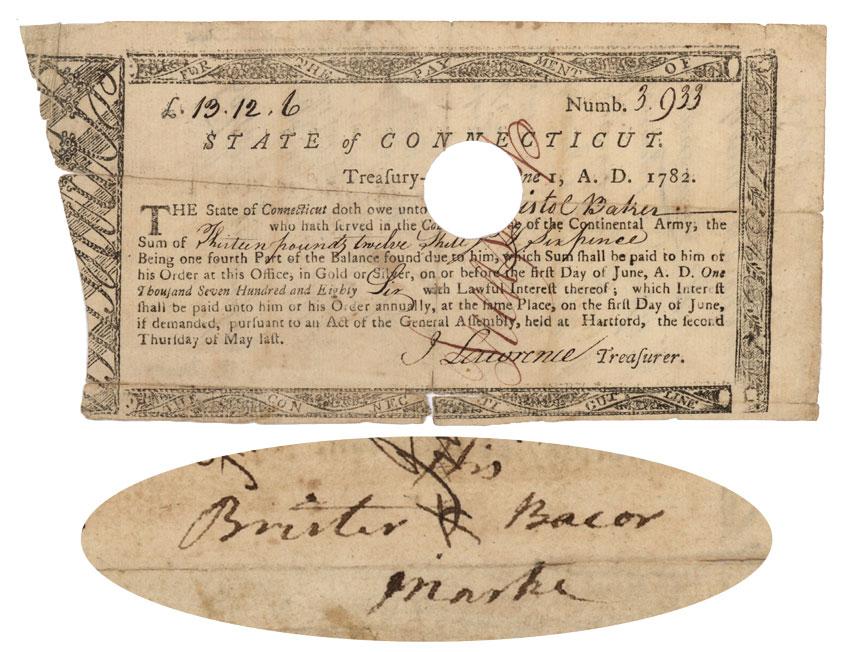 FOR THE PAY MENT OF
£. 13.12.6 Numb. 3.933
STATE of CONNECTICUT.
Treaſury- ne 1, A. D. 1782.
THE State of Connecticut doth owe unto istol Baker
who hath ſerved in the Co e of the Continental Army, the
Sum of Thirteen pounds twelve Shill & Sixpence
Being one fourth Part of the Balance found due to him, which Sum ſhall be paid to him or
his Order at this Office, in Gold or Silver, on or before the firſt Day of June, A. D. One
Thouſand Seven Hundred and Eighty Six with Lawful Intereſt thereof; which Intereſt
ſhall be paid unto him or his Order annually, at the ſame Place, on the firſt Day of June,
if demanded, purſuant to an Act of the General Aſſembly, held at Hartford, the ſecond
Thurſday of May laſt.
J Lawrence Treaſurer.
THE CON NEC TI CUT LINE
his
Brister Bacor
marke